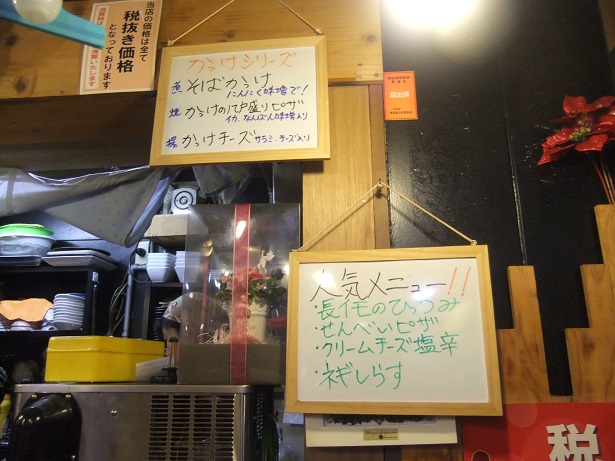 当店の価格は全て
税抜き価格
となっております
かっけシリーズ
煮 そばかっけ
にんにく味噌で!
焼 かっけの八戸盛りピザ
イカ、なんばん味噌入り
揚 かっけチーズ サラミ・チーズ入り
人気メニュー!!
・長イモのひっつみ
・せんべいピザ
・クリームチーズ塩辛
・ネギしらす
税